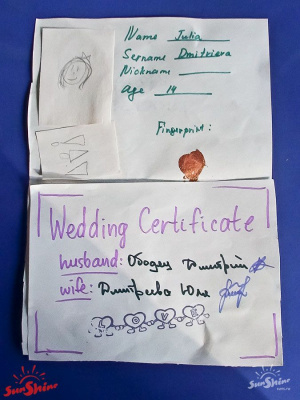 Name Julia
Sername Dmitrieva
Nickname
age 14
Fingerprint:
Wedding Certificate
husband: Дмитрий
wife: Дмитриева Юля
LOVE
SunShine
SunShine